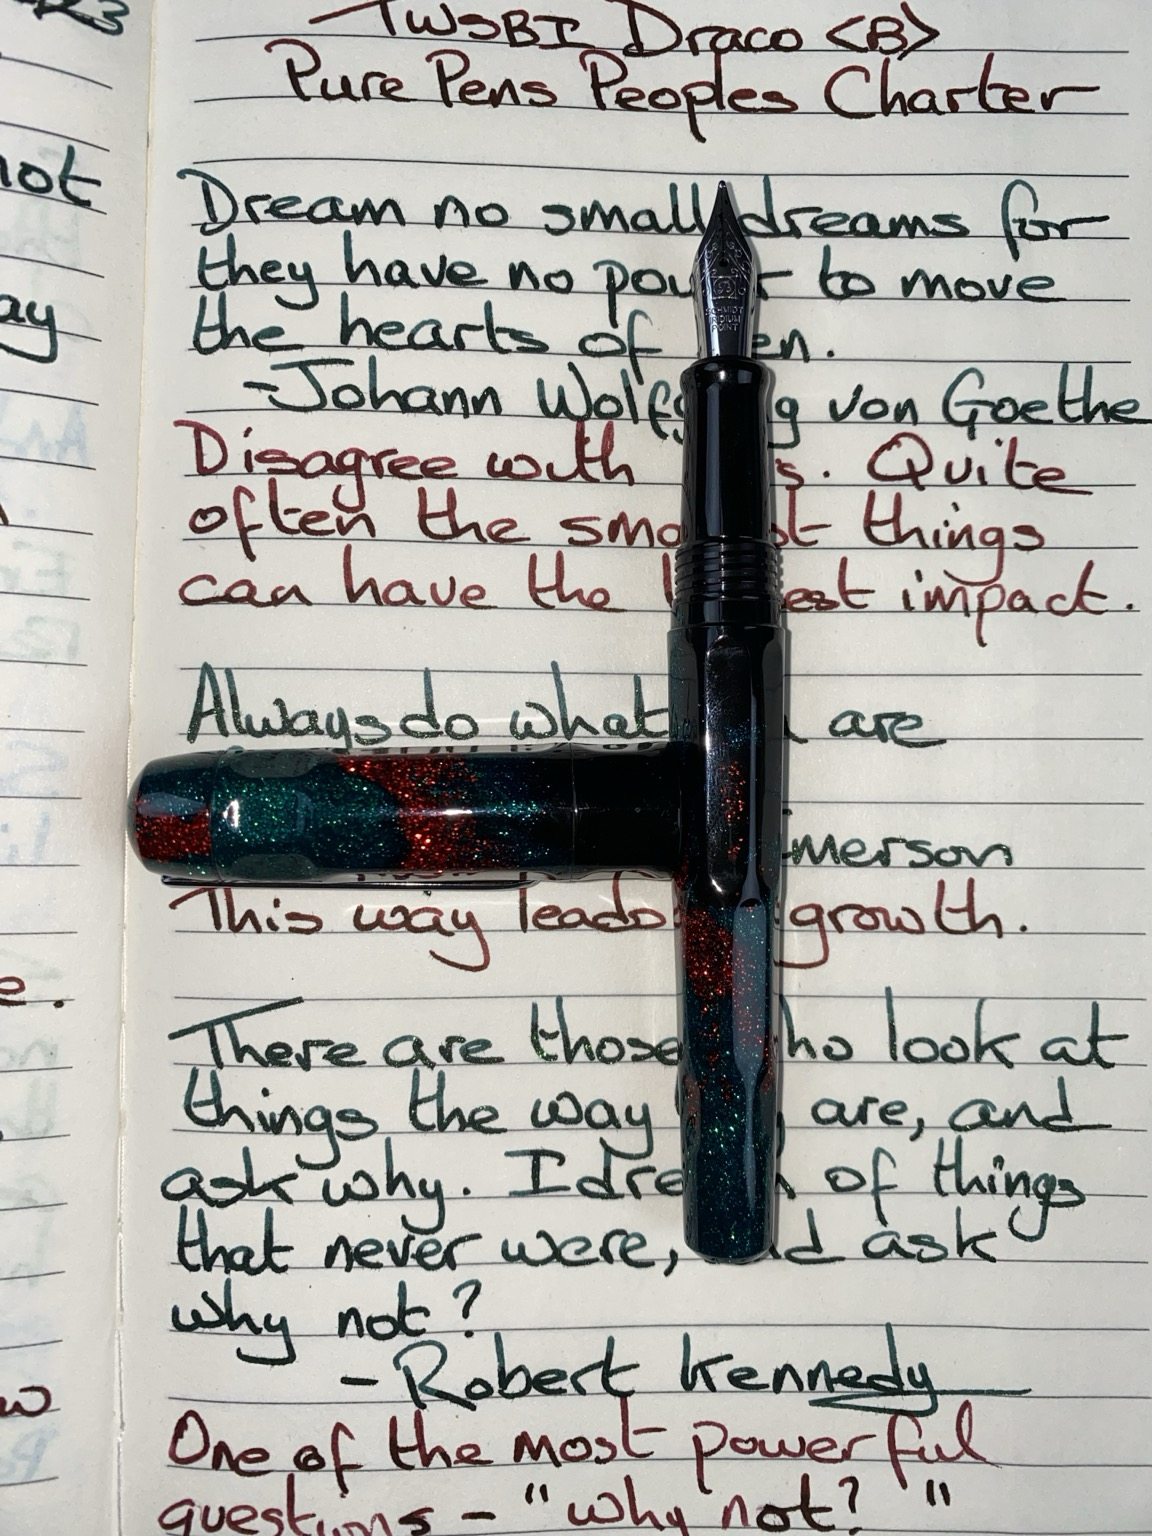 TWSBI Draco <B>
Pure Pens Peoples Charter
not
Dream no small dreams for
they have no to move
ay
the hearts of
-Johann von Goethe
Disagree with Quite
often the things
can have the impact.
Always do what are
Emerson
This way leads growth.
e.
There are those who look at
things the way are, and
ask why. I of things
that never were, and ask
why not?
- Robert Kennedy
w
One of the most powerful
questions - "why not? "
SCHMIDT
IRIDIUM
POINT